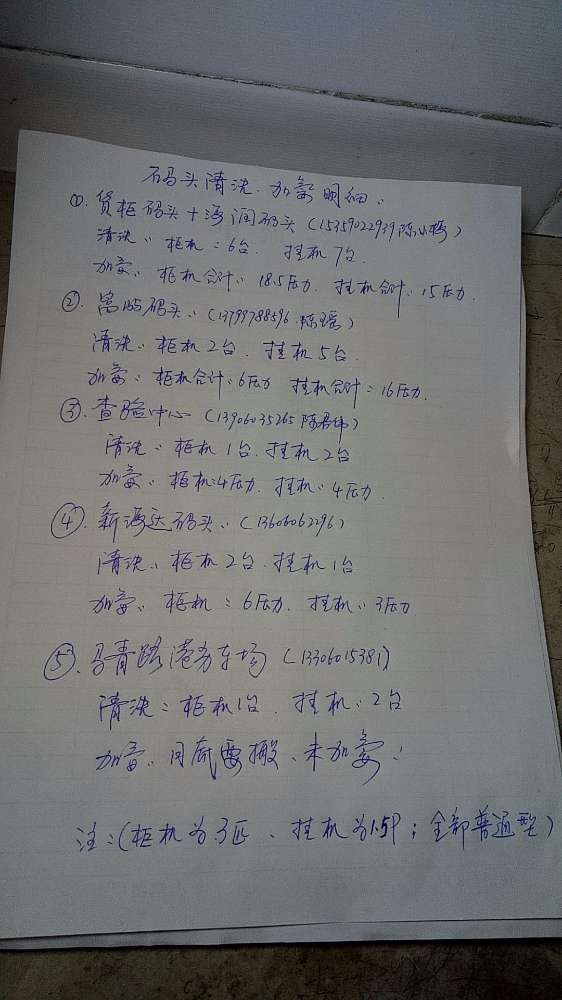 码头清洗、加氨明细:
①. 货柜码头+海润码头 (15359022939 陈小梅)
清洗: 柜机: 6台. 挂机7台.
加氨: 柜机合计: 18.5压力. 挂机合计: 15压力.
②. 高崎码头: (13799788596. 陈瑶)
清洗: 柜机2台. 挂机5台.
加氨: 柜机合计: 6压力 挂机合计: 16压力.
③. 查验中心 (13906035265 陈)
清洗: 柜机1台. 挂机2台
加氨: 柜机: 4压力. 挂机: 4压力.
④. 新海达码头: (13606062296)
清洗: 柜机2台. 挂机1台
加氨: 柜机: 6压力. 挂机: 3压力.
⑤. 马青路港务车场 (13306015381)
清洗: 柜机1台. 挂机: 2台
加氨: 月底要搬、未加氨!
注: (柜机为3匹、挂机为1.5P; 全部普通型)